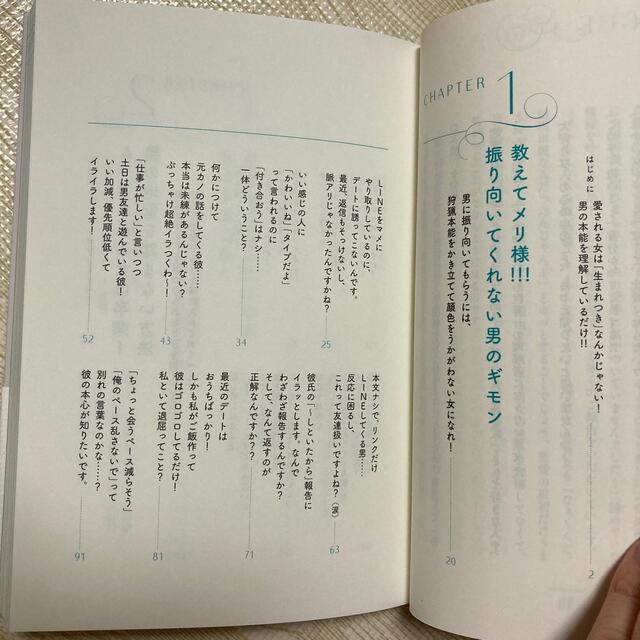 はじめに
愛される女は「生まれつき」なんかじゃない!
男の本能を理解しているだけ!!
2
CHAPTER 1
教えてメリ様!!!
振り向いてくれない男のギモン
男に振り向いてもらうには、
狩猟本能をかき立てて顔色をうかがわない女になれ!
20
LINEをマメに
やり取りしているのに、
デートに誘ってこないんです。
最近、返信もそっけないし、
脈アリじゃなかったんですかね?
25
いい感じの人に
「かわいいね」「タイプだよ」
って言われるのに
「付き合おう」はナシ……
一体どういうこと?
34
何かにつけて
元カノの話をしてくる彼……
本当は未練があるんじゃない?
ぶっちゃけ超絶イラつくわ〜!
43
「仕事が忙しい」と言いつつ
土日は男友達と遊んでいる彼!
いい加減 優先順位低くて
イライラします!
52
本文ナシで、リンクだけ
LINEしてくる男……
反応に困るし、
これって友達扱いですよね?(涙)
63
彼氏の「〜しといたから」報告に
イラッとします。なんで
わざわざ報告するんですか?
そして、なんて返すのが
正解なんですか?
71
最近のデートは
おうちばっかり!
しかも私がご飯作って
彼はゴロゴロしてるだけ!
私といて退屈ってこと?
81
「ちょっと会うペース減らそう」
「俺のペース乱さないで」って
別れの言葉なのかな……?
彼の本心が知りたいです。
91